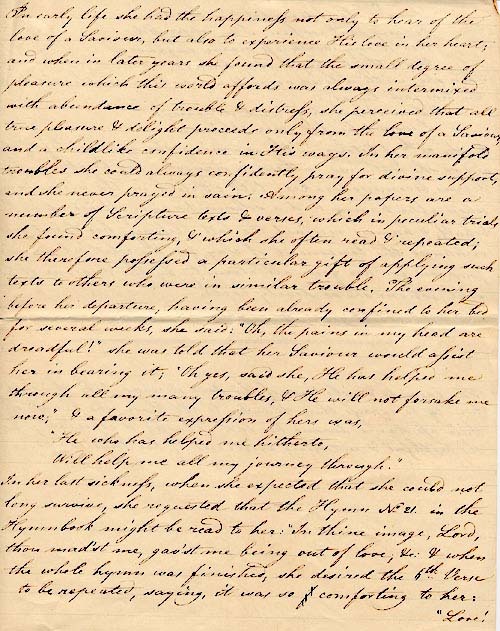 In early life she had the happiness not only to hear of the
love of a Saviour, but also to experience His love in her heart;
and when in later years she found that the small degree of
pleasure which this world affords was always intermixed
with abundance of trouble & distress, she perceived that all
true pleasure & delight proceeds only from the love of a Saviour,
and a childlike confidence in His ways. In her manifold
troubles she could always confidently pray for divine support,
and she never prayed in vain. Among her papers are a
number of Scripture texts & verses, which in peculiar trials
she found comforting, & which she often read & repeated;
she therefore possessed a particular gift of applying such
texts to others who were in similar trouble. The evening
before her departure, having been already confined to her bed
for several weeks, she said: "Oh, the pains in my head are
dreadful!" she was told that her Saviour would assist
her in bearing it; "Oh yes, said she, He has helped me
through all my many troubles, & He will not forsake me
now;" & a favorite expression of hers was,
"He who has helped me hitherto,
Will help me all my journey through."
In her last sickness, when she expected that she could not
long survive, she requested that the Hymn No 21. in the
Hymnbook might be read to her: "In thine image, Lord,
thou mad'st me, gav'st me being out of love, &c: & when
the whole hymn was finished, she desired the 6th Verse
to be repeated, saying, it was so comforting to her:
"Love!